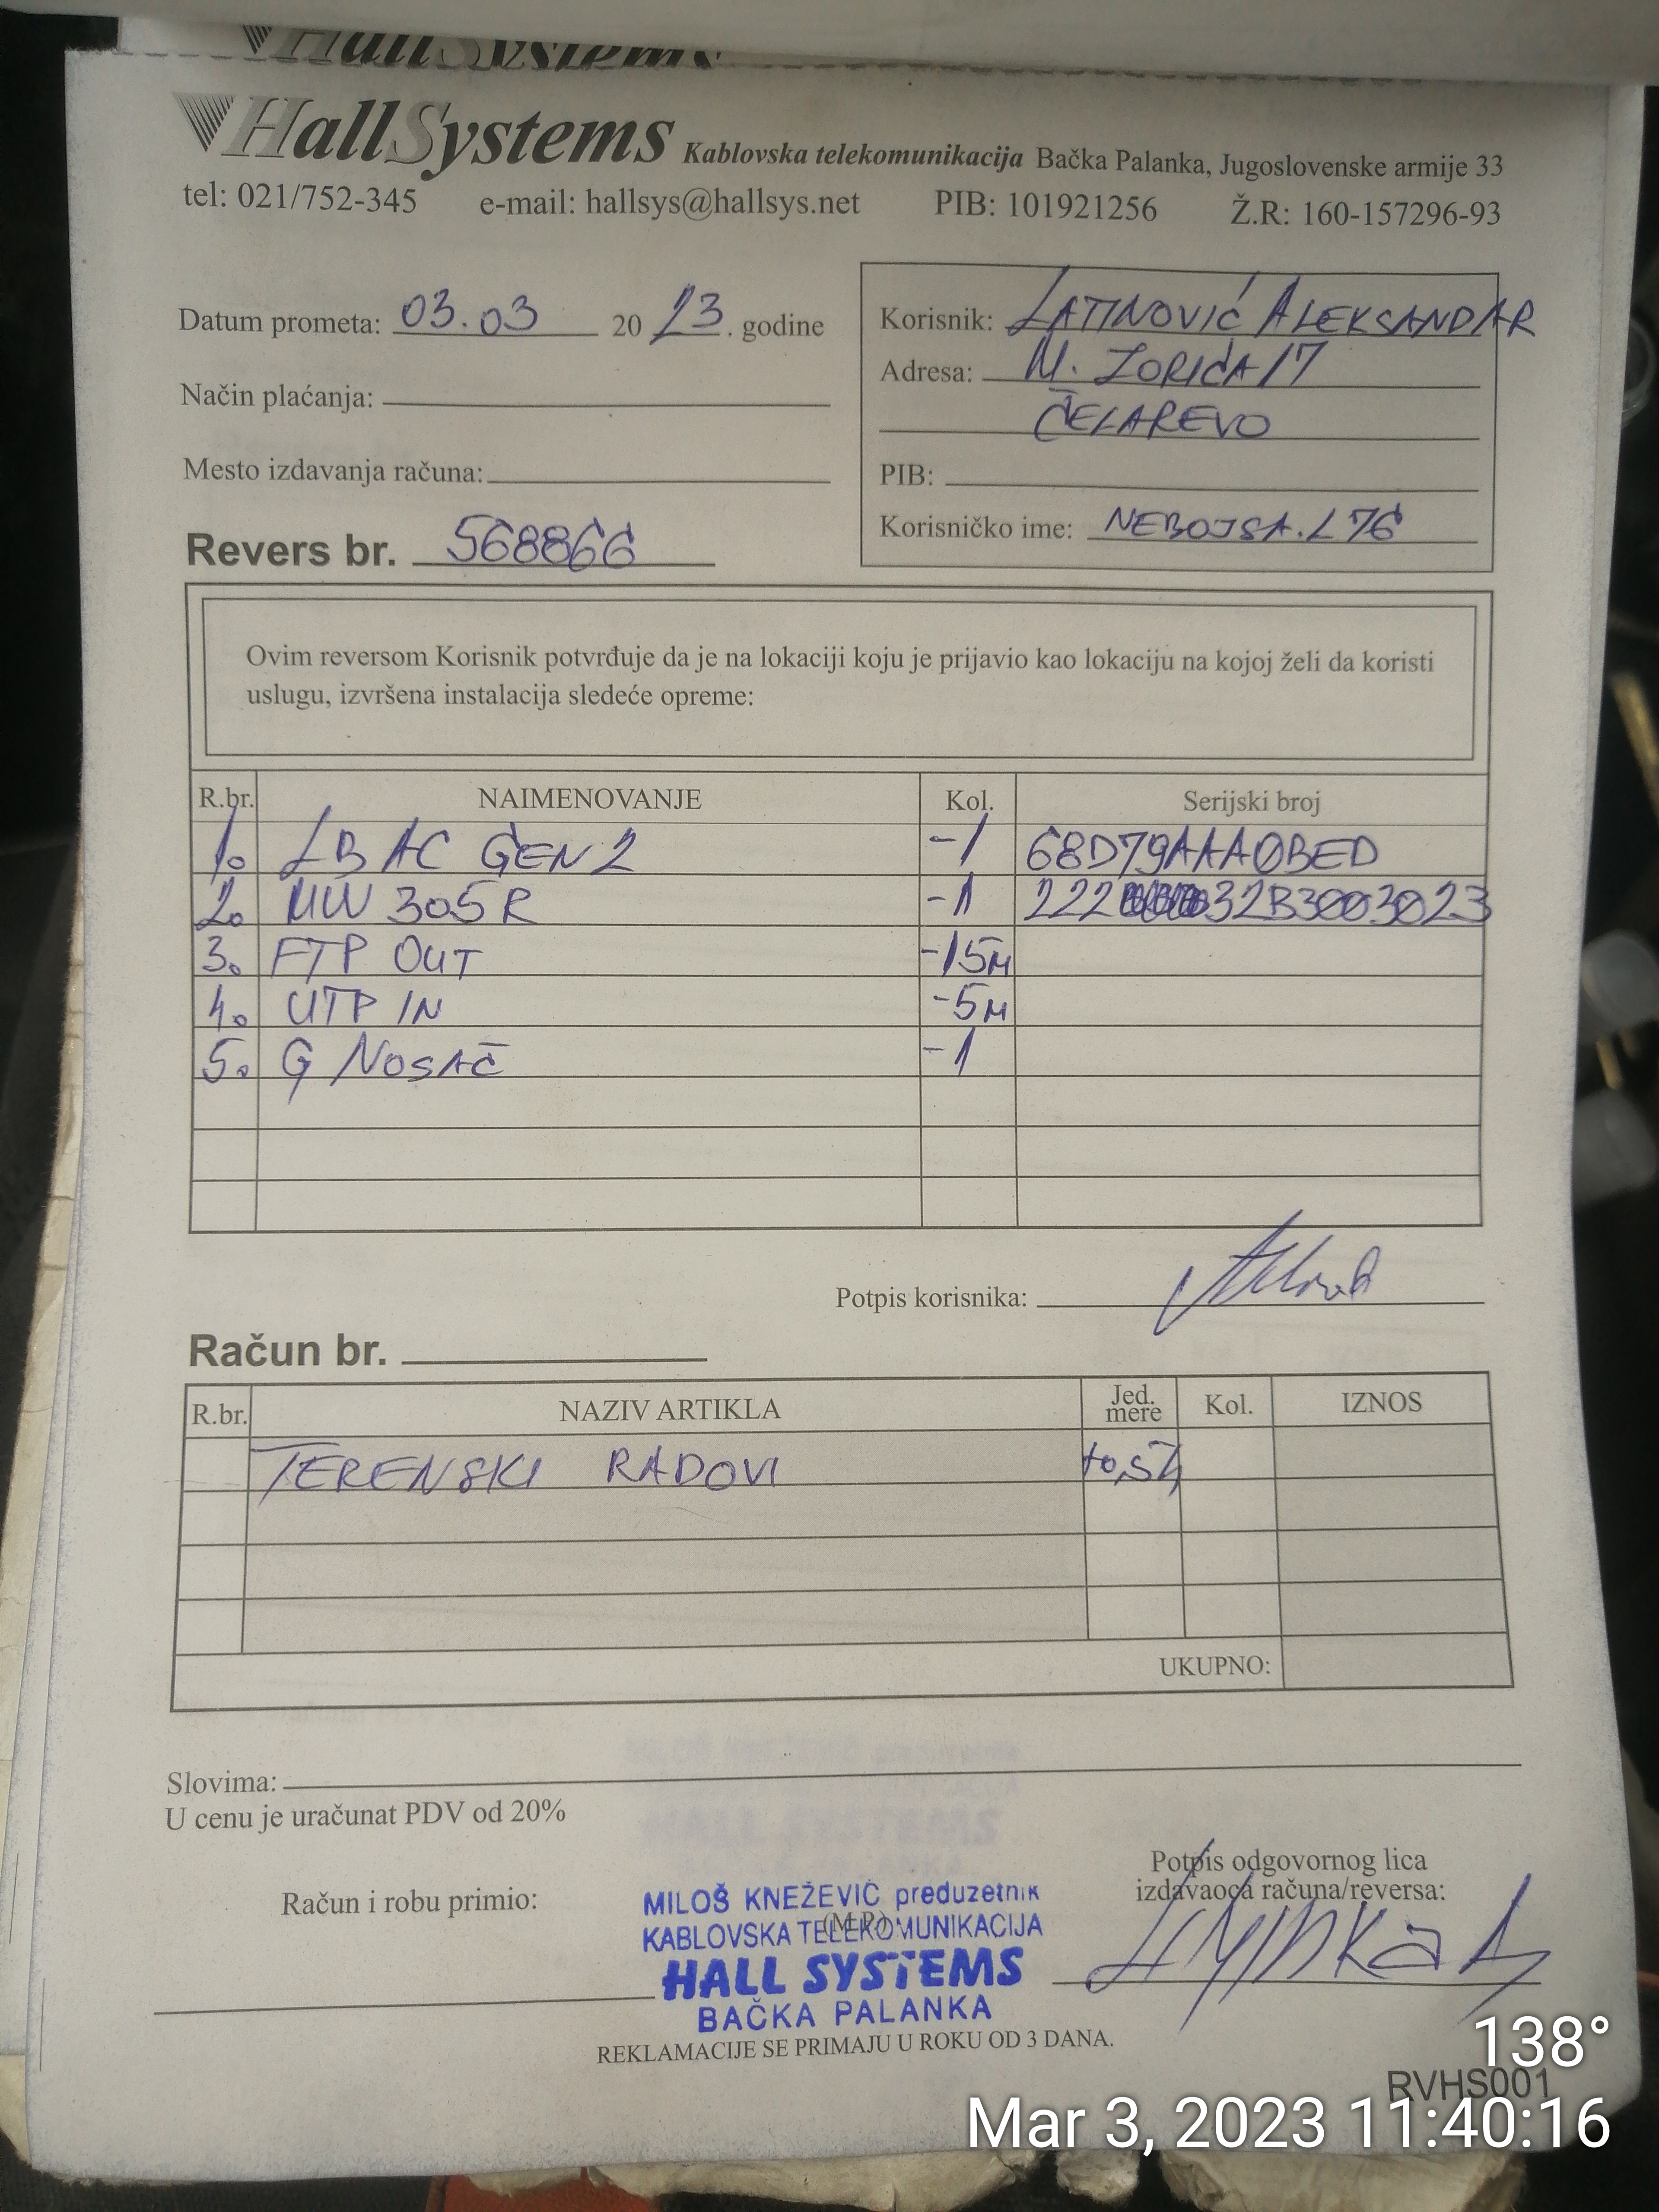 HallSystems
HallSystems Kablovska telekomunikacija Bačka Palanka, Jugoslovenske armije 33
tel: 021/752-345 e-mail: hallsys@hallsys.net PIB: 101921256 Ž.R: 160-157296-93
Datum prometa: 03.03 2023. godine
Način plaćanja:
Mesto izdavanja računa:
Revers br. 568866
Korisnik: LATINOVIĆ ALEKSANDAR
Adresa: M. ZORIĆA 17
ČELAREVO
PIB:
Korisničko ime: NEBOJSA.L76
Ovim reversom Korisnik potvrđuje da je na lokaciji koju je prijavio kao lokaciju na kojoj želi da koristi
uslugu, izvršena instalacija sledeće opreme:
R.br. NAIMENOVANJE Kol. Serijski broj
1. LB AC GEN2 -1 68D79AAA0BED
2. MW 305R -1 222 32B3003023
3. FTP OUT -15m
4. UTP IN -5m
5. G NOSAČ -1
Potpis korisnika:
Račun br.
R.br. NAZIV ARTIKLA Jed. mere Kol. IZNOS
TERENSKI RADOVI
UKUPNO:
Slovima:
U cenu je uračunat PDV od 20%
Račun i robu primio:
MILOŠ KNEŽEVIĆ preduzetnik
(M.P.)
KABLOVSKA TELEKOMUNIKACIJA
HALL SYSTEMS
BAČKA PALANKA
Potpis odgovornog lica
izdavaoca računa/reversa:
REKLAMACIJE SE PRIMAJU U ROKU OD 3 DANA.
RVHS001
138°
Mar 3, 2023 11:40:16